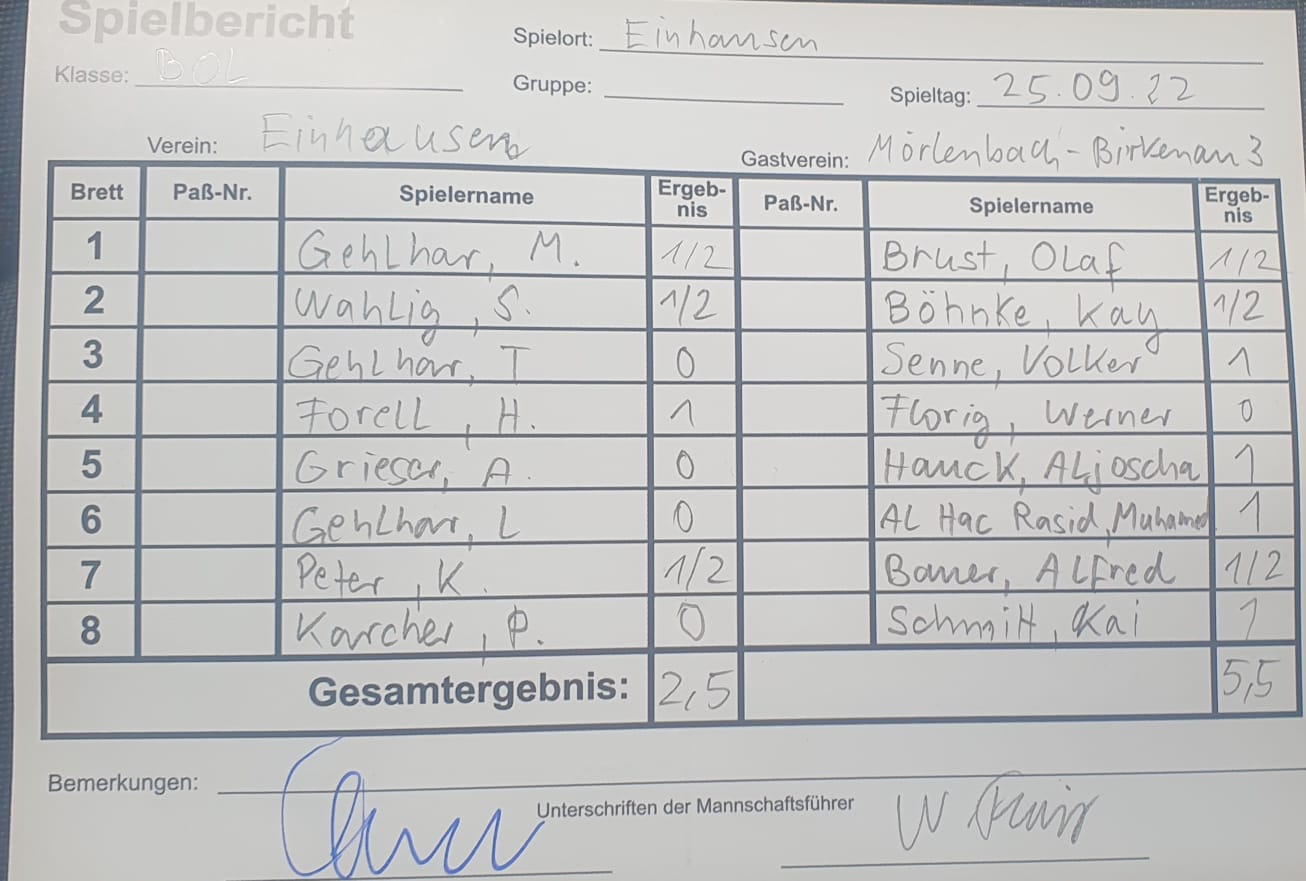 Spielbericht
Spielort: Einhausen
Klasse: BOL
Gruppe:
Spieltag: 25.09.22
Verein: Einhausen
Gastverein: Mörlenbach - Birkenau 3
Brett Paß-Nr. Spielername Ergeb-nis Paß-Nr. Spielername Ergeb-nis
1 Gehlhar, M. 1/2 Brust, Olaf 1/2
2 Wahlig, S. 1/2 Böhnke, Kay 1/2
3 Gehlhar, T 0 Senne, Volker 1
4 Forell, H. 1 Florig, Werner 0
5 Grieser, A. 0 Hauck, Aljoscha 1
6 Gehlhar, L 0 Al Hac Rasid, Muhamed 1
7 Peter, K. 1/2 Bauer, Alfred 1/2
8 Karcher, P. 0 Schmitt, Kai 1
Gesamtergebnis: 2,5 5,5
Bemerkungen:
Unterschriften der Mannschaftsführer